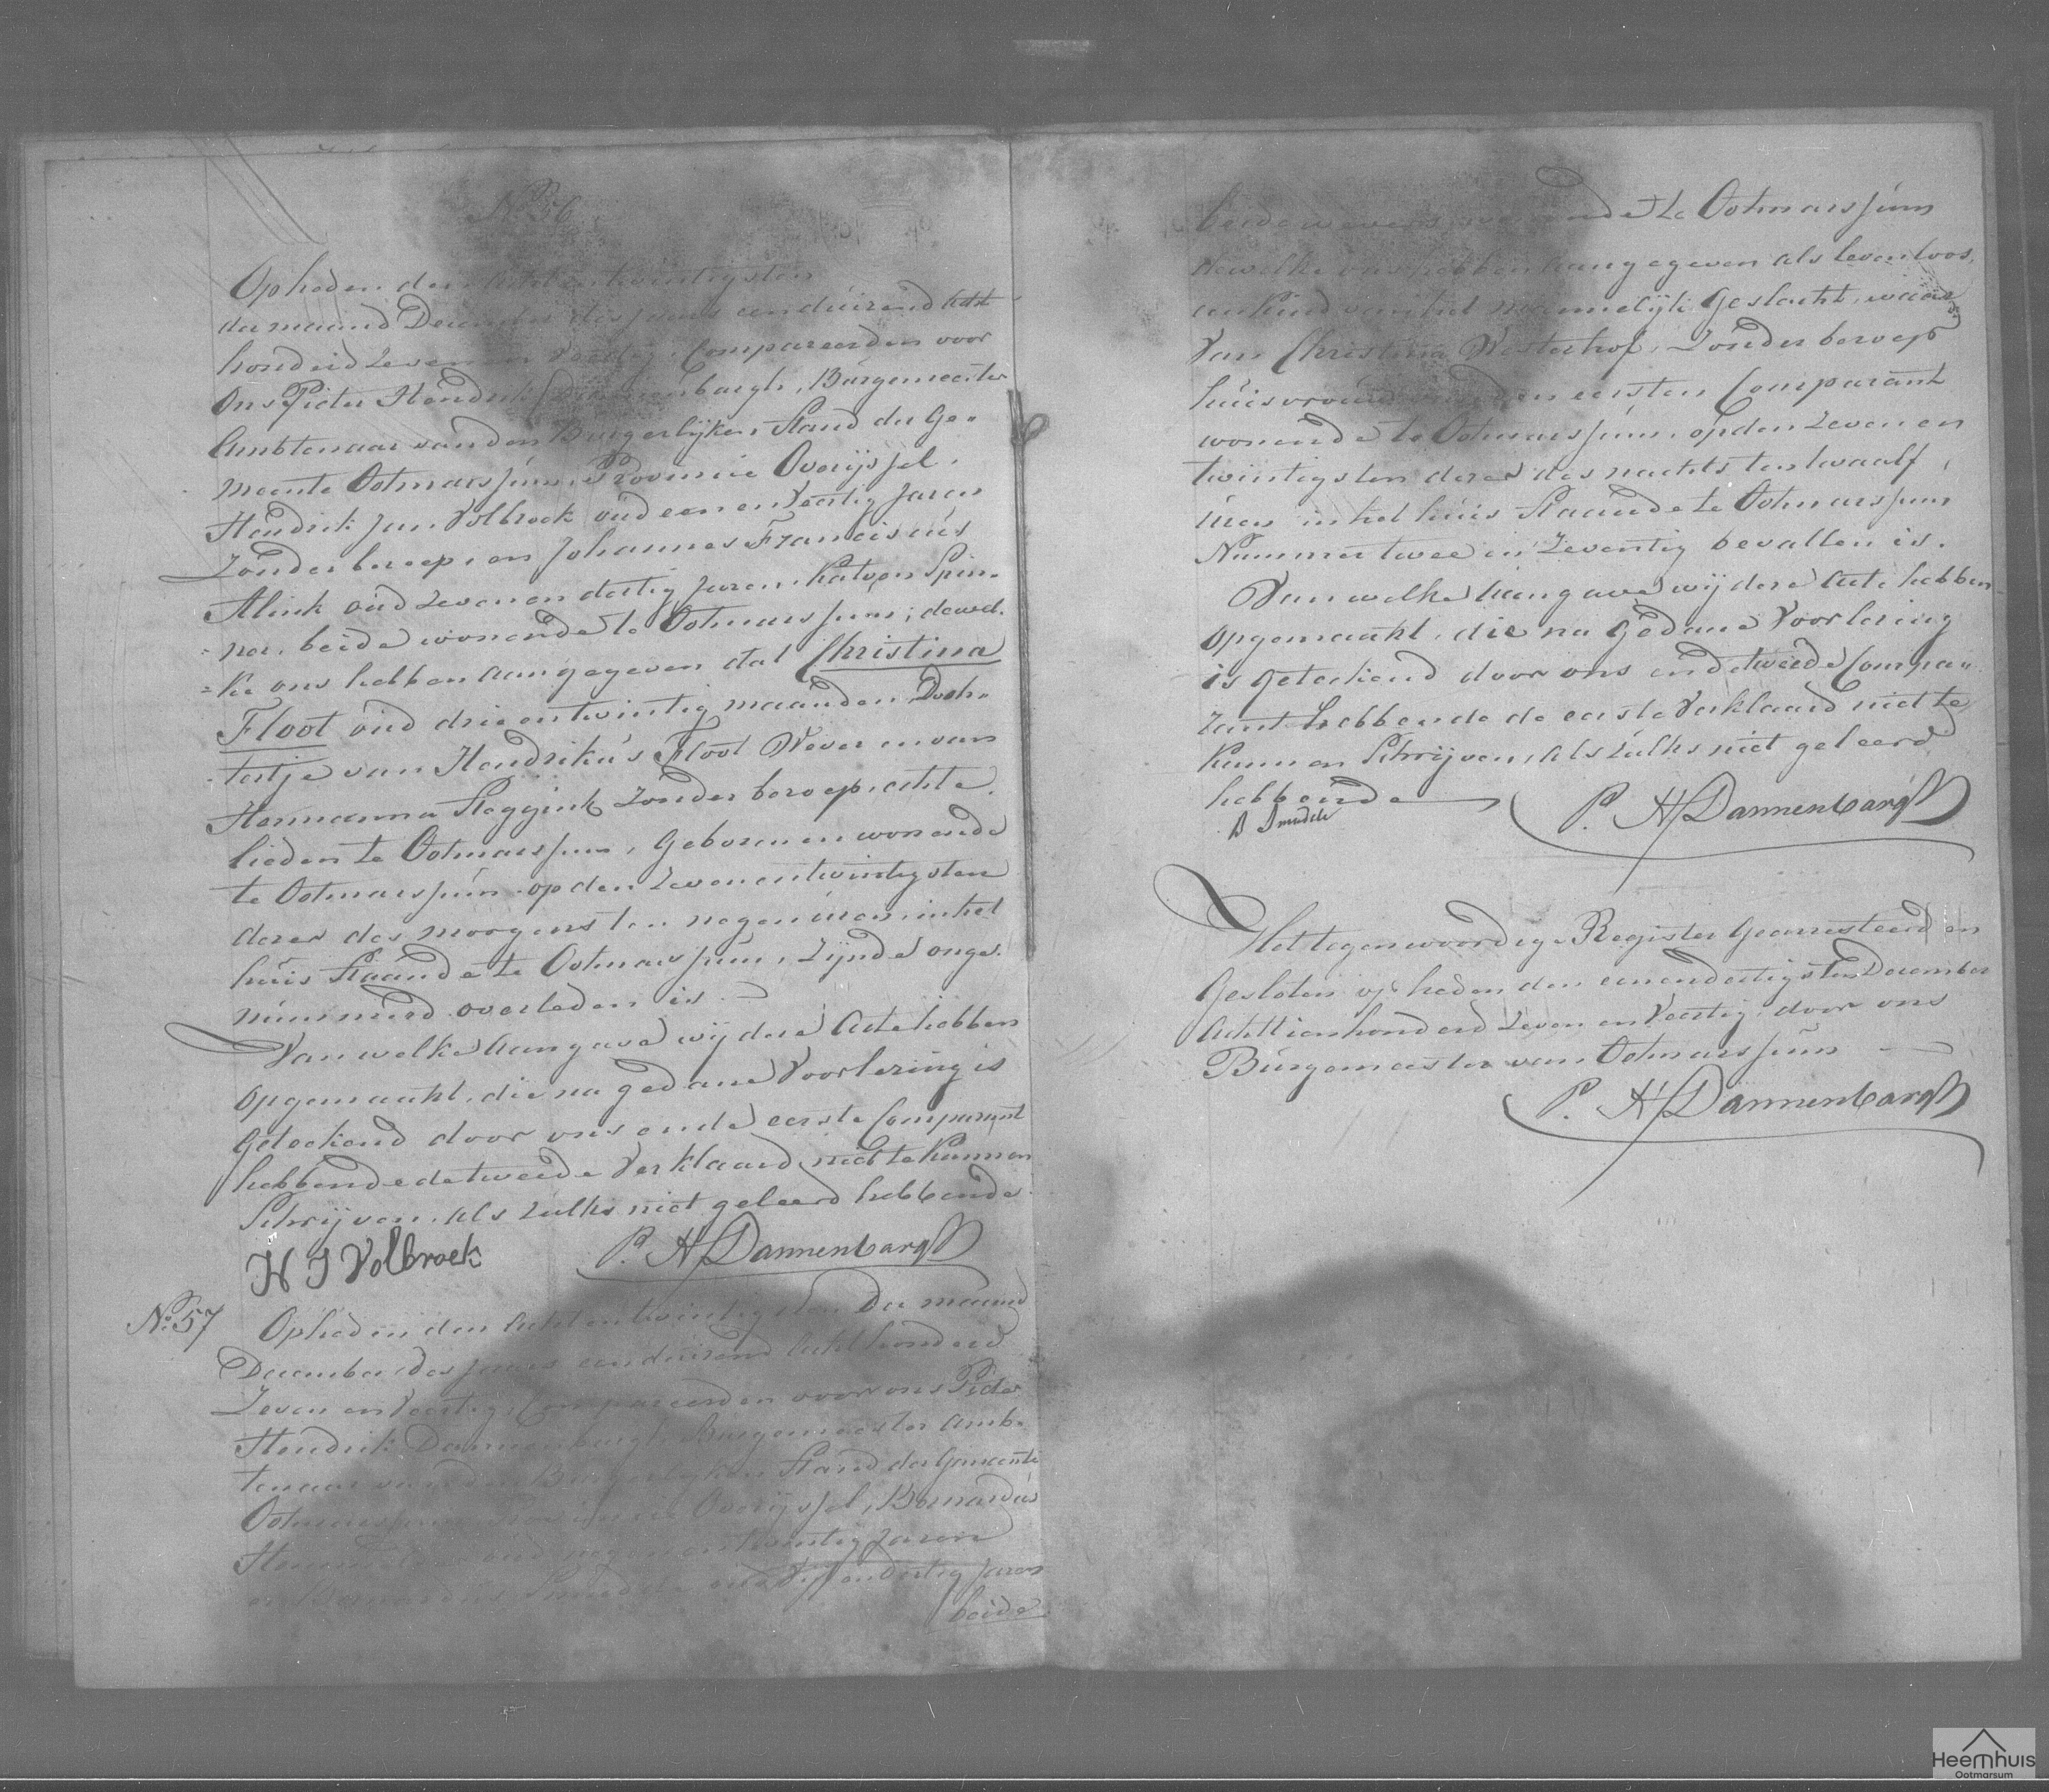 No. 56
Op heden den acht en twintigsten
der maand December des jaars een duizend acht
honderd zeven en veertig, Compareerden voor
Ons Pieter Hendrik Dannenbargh, Burgemeester
Ambtenaar van den Burgerlijken Stand der Ge-
meente Ootmarssum, Provincie Overijssel,
Hendrik Jan Volbroek oud een en veertig Jaren
Zonder beroep, en Johannes Franciscus
Alink oud zeven en dertig Jaren, Katoen Spin-
-ner, beide wonende te Ootmarssum; dewel-
=ke ons hebben aangegeven dat Christina
Floot oud drie en twintig maanden Doch-
-tertje van Hendrikus Floot Wever en van
Hermanna Steggink zonder beroep, echte
lieden te Ootmarssum, Geboren en wonende
te Ootmarssum op den zeven en twintigsten
dezer des morgens ten negen uren, in het
huis Staande te Ootmarssum, zijnde onge-
nummerd overleden is.
Van welke Aangave wij deze Acte hebben
opgemaakt, die na gedane Voorlezing is
geteekend door ons en de eerste Comparant
hebbende de tweede Verklaard niet te kunnen
Schrijven, als zulks niet geleerd hebbende
H J Volbroek P. H Dannenbargh
No. 57
Op heden den acht en twintigsten der maand
December des jaars een duizend acht honderd
Zeven en Veertig, Compareerden voor ons Pieter
Hendrik Dannenbargh Burgemeester Amb-
tenaar van den Burgerlijken Stand der Gemeente
Ootmarssum Provincie Overijssel, Bernardus
oud negen en twintig Jaren
en Bernardus Smudde oud Vijf en dertig Jaren
beide
beide wevers, wonende te Ootmarssum
dewelke ons hebben aangegeven als levenloos,
een kind van het mannelijk Geslacht, waar
Van Christina Westerhof, zonder beroep
huisvrouw van den eersten Comparant
wonende te Ootmarssum, op den zeven en
twintigsten dezer des nachts ten twaalf
uren in het huis Staande te Ootmarssum
Nummer twee en Zeventig bevallen is.
Van welke Aangave wij deze Acte hebben
opgemaakt, die na Gedane Voorlezing
is geteekend door ons en de tweede Compa-
rant hebbende de eerste Verklaard niet te
Kunnen Schrijven, als zulks niet geleerd
hebbende P. H Dannenbargh
B Smudde
Het tegenwoordige Register Gearresteerd en
Gesloten op heden den een en dertigsten December
Achttienhonderd Zeven en Veertig door ons
Burgemeester van Ootmarssum
P. H Dannenbargh
Heemhuis
Ootmarsum